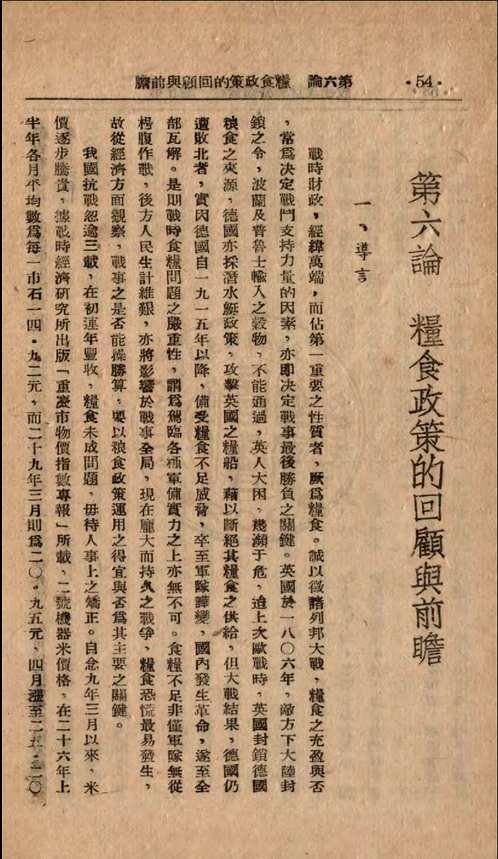 ·54·
第六論　糧食政策的回顧與前瞻
第六論　糧食政策的回顧與前瞻
一、導言
戰時財政，經緯萬端，而佔第一重要之性質者，厥爲糧食。誠以徵諸列邦大戰，糧食之充盈與否
，常爲決定戰鬥支持力量的因素，亦即決定戰事最後勝負之關鍵。英國於一八〇六年，敵方下大陸封
鎖之令，波蘭及普魯士輸入之穀物，不能通過，英人大困，幾瀕于危，迨上次歐戰時，英國封鎖德國
粮食之來源，德國亦採潛水艇政策，攻擊英國之糧船，藉以斷絕其糧食之供給，但大戰結果，德國仍
遭敗北者，實因德國自一九一五年以降，備受糧食不足威脅，卒至軍隊譁變，國內發生革命，遂至全
部瓦解。是則戰時食糧問題之嚴重性，謂爲駕臨各種軍備實力之上亦無不可。食糧不足非僅軍隊無從
枵腹作戰，後方人民生計維艱，亦將影響於戰事全局，現在龐大而持久之戰爭，糧食恐慌最易發生，
故從經濟方面觀察，戰事之是否能操勝算，要以粮食政策運用之得宜與否爲其主要之關鍵。
我國抗戰忽逾三載，在初連年豐收，糧食未成問題，毋待人事上之矯正。自念九年三月以來，米
價逐步騰貴，據戰時經濟研究所出版「重慶市物價指數專報」所載，二號機器米價格，在二十六年上
半年各月平均數爲每一市石一四·九二元，而二十九年三月則爲二〇·九五元，四月漲至二·二〇